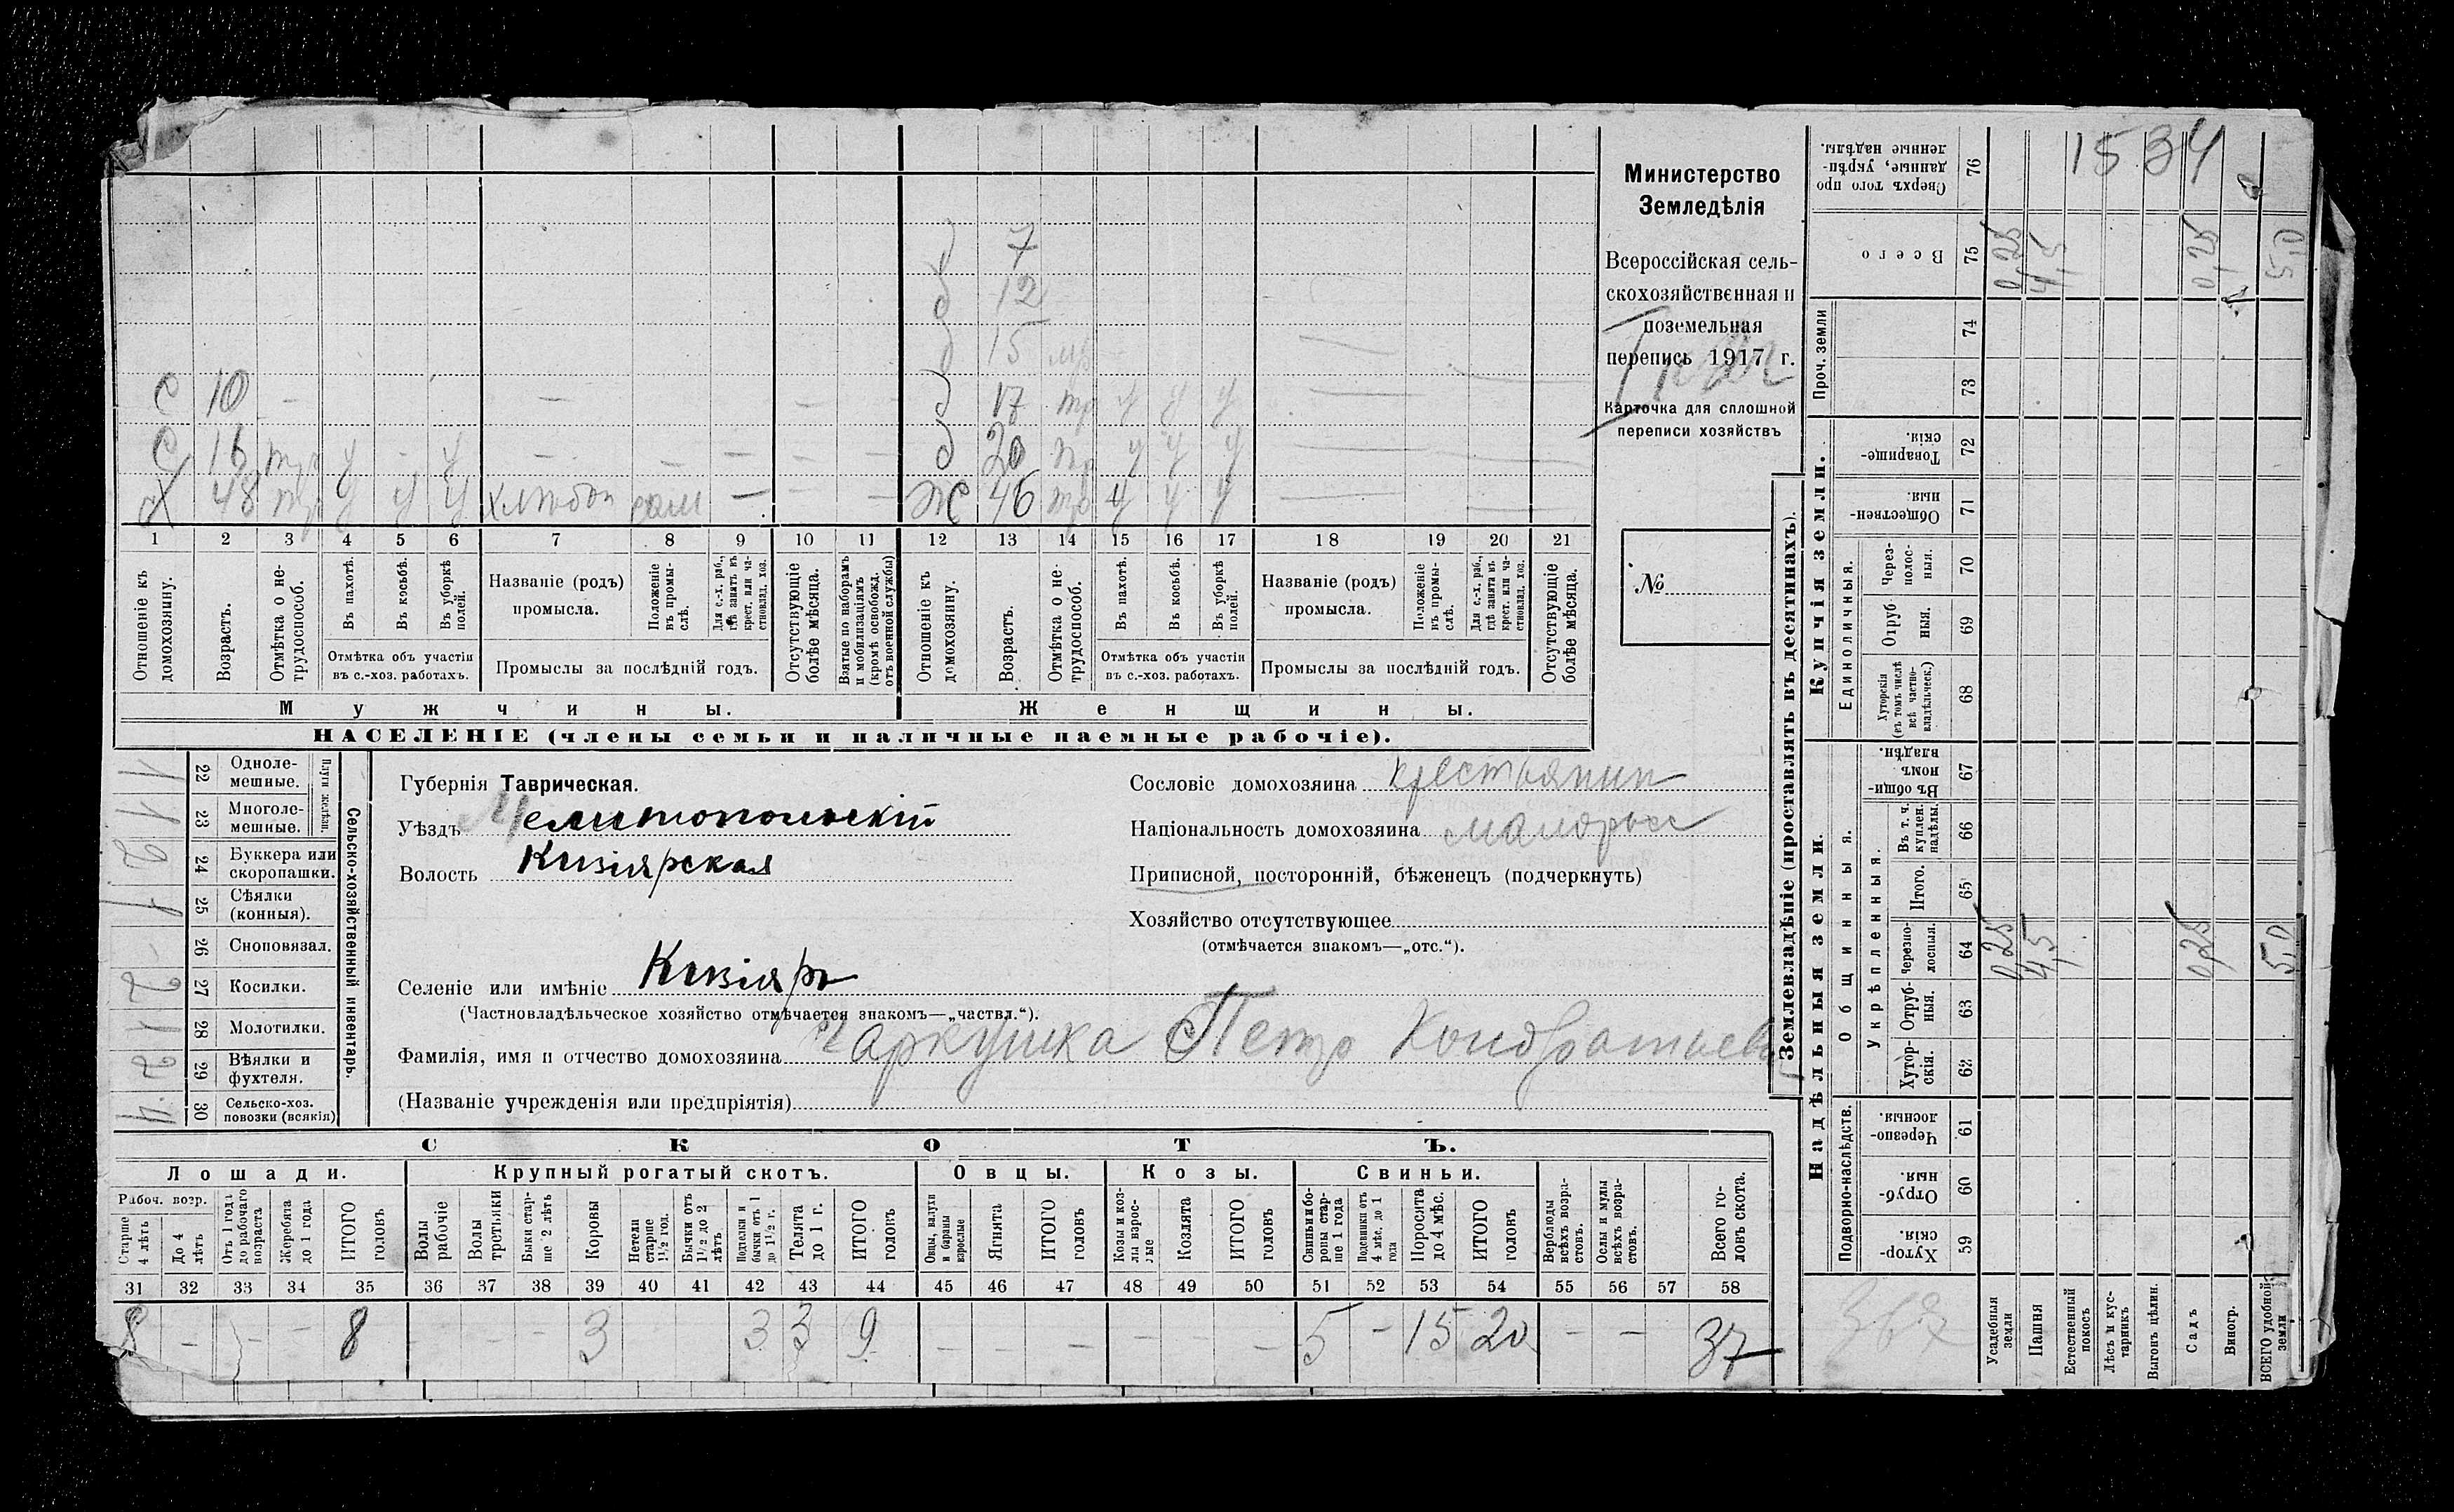 1534
Министерство
Земледѣлія
Всероссійская сель-
скохозяйственная и
поземельная
перепись 1917 г.
Карточка для сплошной
переписи хозяйствъ
№
д 7
д 12
д 15
С 10 — — — — д 17 тр у у у —
С 16 тр у - у — — — — — д 20 тр у у у —
Х 48 тр у у у хлѣбоп сам — — — ж 46 тр у у у —
1 2 3 4 5 6 7 8 9 10 11 12 13 14 15 16 17 18 19 20 21
Отношеніе къ домохозяину.
Возрастъ.
Отмѣтка о не-трудоспособ.
Въ пахотѣ.
Въ косьбѣ.
Въ уборкѣ полей.
Отмѣтка объ участіи
въ с.-хоз. работахъ.
Названіе (родъ)
промысла.
Положеніе въ промы-слѣ.
Для с.-х. раб., гдѣ занятъ въ крест. или ча-стновлад. хоз.
Промыслы за послѣдній годъ.
Отсутствующіе болѣе мѣсяца.
Взятые по наборамъ и мобилизаціямъ (кромѣ освобожд. отъ военной службы)
Отношеніе къ домохозяину.
Возрастъ.
Отмѣтка о не-трудоспособ.
Въ пахотѣ.
Въ косьбѣ.
Въ уборкѣ полей.
Отмѣтка объ участіи
въ с.-хоз. работахъ.
Названіе (родъ)
промысла.
Положеніе въ промы-слѣ.
Для с.-х. раб., гдѣ занята въ крест. или ча-стновлад. хоз.
Промыслы за послѣдній годъ.
Отсутствующіе болѣе мѣсяца.
Мужчины. Женщины.
НАСЕЛЕНІЕ (члены семьи и наличные наемные рабочіе).
Сельско-хозяйственный инвентарь.
Плуги желѣзн.
22 Одноле-мешные. 1
23 Многоле-мешные. 1
24 Буккера или скоропашки. 2
25 Сѣялки (конныя). 1
26 Сноповязал. -
27 Косилки. 2
28 Молотилки. 1
29 Вѣялки и фухтеля. 2
30 Сельско-хоз. повозки (всякія) 4
Губернія Таврическая.
Уѣздъ Мелитопольскій
Волость Кизіярская
Сословіе домохозяина крестьянин
Національность домохозяина малорос
Приписной, посторонній, бѣженецъ (подчеркнуть)
Хозяйство отсутствующее
(отмѣчается знакомъ—„отс.“).
Селеніе или имѣніе Кизіяръ
(Частновладѣльческое хозяйство отмѣчается знакомъ—„частвл.“).
Фамилія, имя и отчество домохозяина Чаркушка Петр Кондратьев
(Названіе учрежденія или предпріятія)
СКОТЪ.
Лошади. Крупный рогатый скотъ. Овцы. Козы. Свиньи.
Рабоч. возр.
Старше 4 лѣтъ
До 4 лѣтъ
Отъ 1 года до рабочаго возраста
Жеребята до 1 года
ИТОГО головъ
Волы рабочіе
Волы третьяки
Быки стар-ше 2 лѣтъ
Коровы
Нетели старше 1½ год.
Бычки отъ 1½ до 2 лѣтъ
Подтелки и бычки отъ 1 до 1½ г.
Телята до 1 г.
ИТОГО головъ
Овцы, валухи и бараны взрослые
Ягнята
ИТОГО головъ
Козы и коз-лы взрос-лые
Козлята
ИТОГО головъ
Свиньи и бо-ровы стар-ше 1 года
Подсвинки отъ 4 мѣс. до 1 года
Поросята до 4 мѣс.
ИТОГО головъ
Верблюды всѣхъ возра-стовъ.
Ослы и мулы всѣхъ возра-стовъ.
Всего го-ловъ скота.
31 32 33 34 35 36 37 38 39 40 41 42 43 44 45 46 47 48 49 50 51 52 53 54 55 56 57 58
8 - - - 8 - - - 3 3 3 9 - - - - - - 5 - 15 20 - - 37
Землевладѣніе (проставлять въ десятинахъ).
Купчія земли.
Надѣльныя земли.
Сверхъ того про данные, укрѣп-ленные надѣлы. 76
Всего 75 0,25 4,5 0,25 5,0
Проч. земли 74
73
Товарище-скія. 72
Обществен-ныя. 71
Единоличныя.
Через-полос-ныя. 70
Отруб-ныя. 69
Хуторскія (въ томъ числѣ всѣ частно-владѣльческ.) 68
Общинныя.
Въ общи-номъ владѣн. 67
Укрѣпленныя.
Въ т. ч. куплен. надѣлы. 66
Итого. 65
Черезпо-лосныя. 64 0,25 4,5 0,25 5,0
Отруб-ныя. 63
Хутор-скія. 62
Подворно-наслѣдств.
Черезпо-лосныя. 61
Отруб-ныя. 60
Хутор-скія. 59
367
Усадебныя земли
Пашня
Естественный покосъ
Лѣсъ и кус-тарникъ
Выгонъ цѣлин.
Садъ
Виногр.
ВСЕГО удобной земли